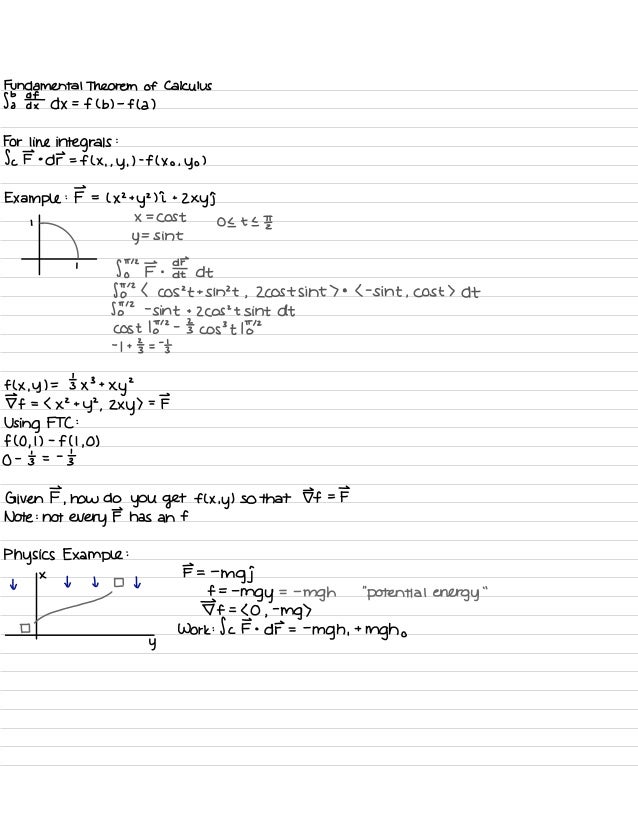 Fundamental Theorem of Calculus
∫ₐᵇ df/dx dx = f(b) - f(a)
For line integrals:
∫c F⃗ • dr⃗ = f(x₁, y₁) - f(x₀, y₀)
Example: F⃗ = (x² + y²)î + 2xyĵ
x = cost 0 ≤ t ≤ π/2
1
y = sint
1
∫₀^π/2 F⃗ • dr⃗/dt dt
∫₀^π/2 < cos²t + sin²t, 2costsint > • < -sint, cost > dt
∫₀^π/2 -sint + 2cos²t sint dt
cost |₀^π/2 - 2/3 cos³t |₀^π/2
-1 + 2/3 = -1/3
f(x,y) = 1/3 x³ + xy²
∇⃗f = < x² + y², 2xy > = F⃗
Using FTC:
f(0,1) - f(1,0)
0 - 1/3 = -1/3
Given F⃗, how do you get f(x,y) so that ∇⃗f = F⃗
Note: not every F⃗ has an f
Physics Example:
x
F⃗ = -mgĵ
f = -mgy = -mgh "potential energy"
∇⃗f = <0, -mg>
Work: ∫c F⃗ • dr⃗ = -mgh₁ + mgh₀
y